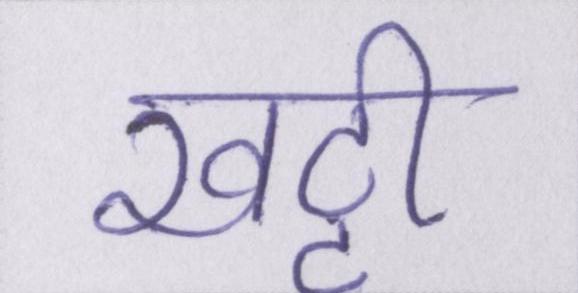 खट्टी